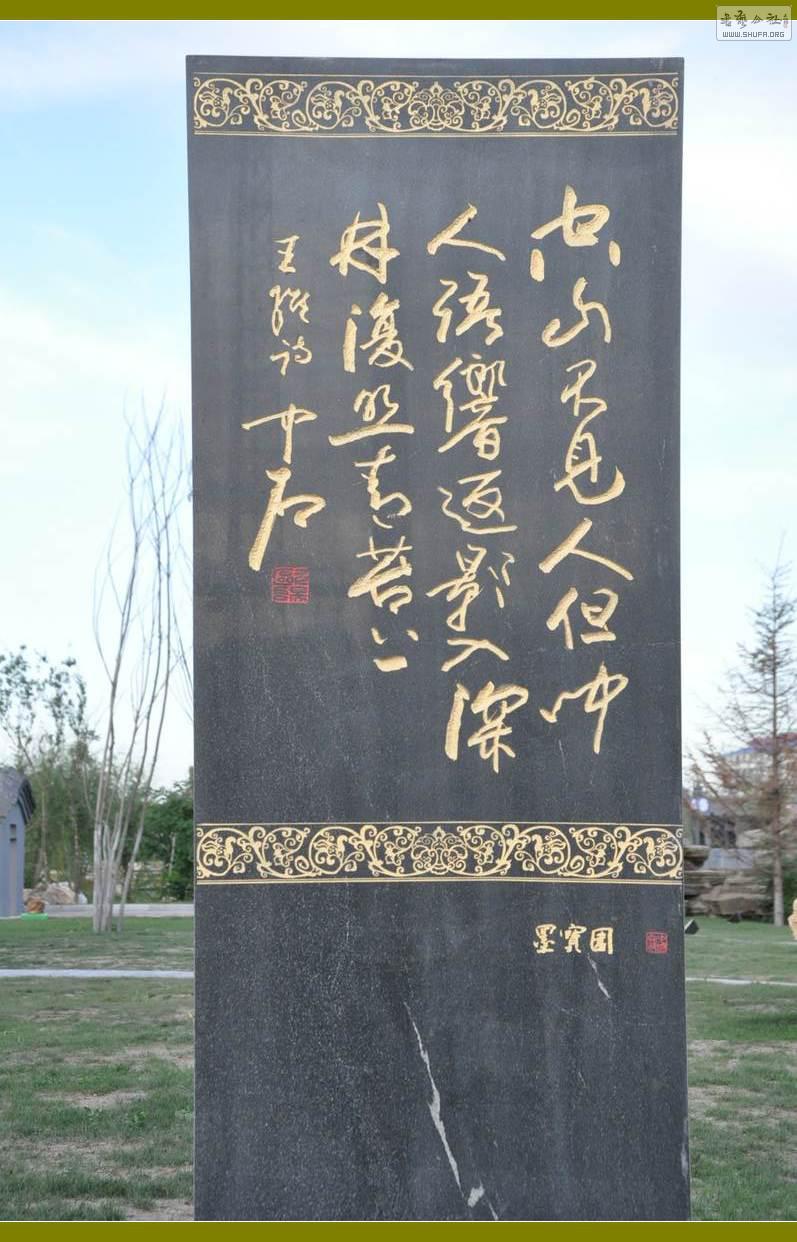 空山不見人但
人語響返影入深
林復照青苔上
王維詩 中石
墨寶園
WWW.SHUFA.ORG